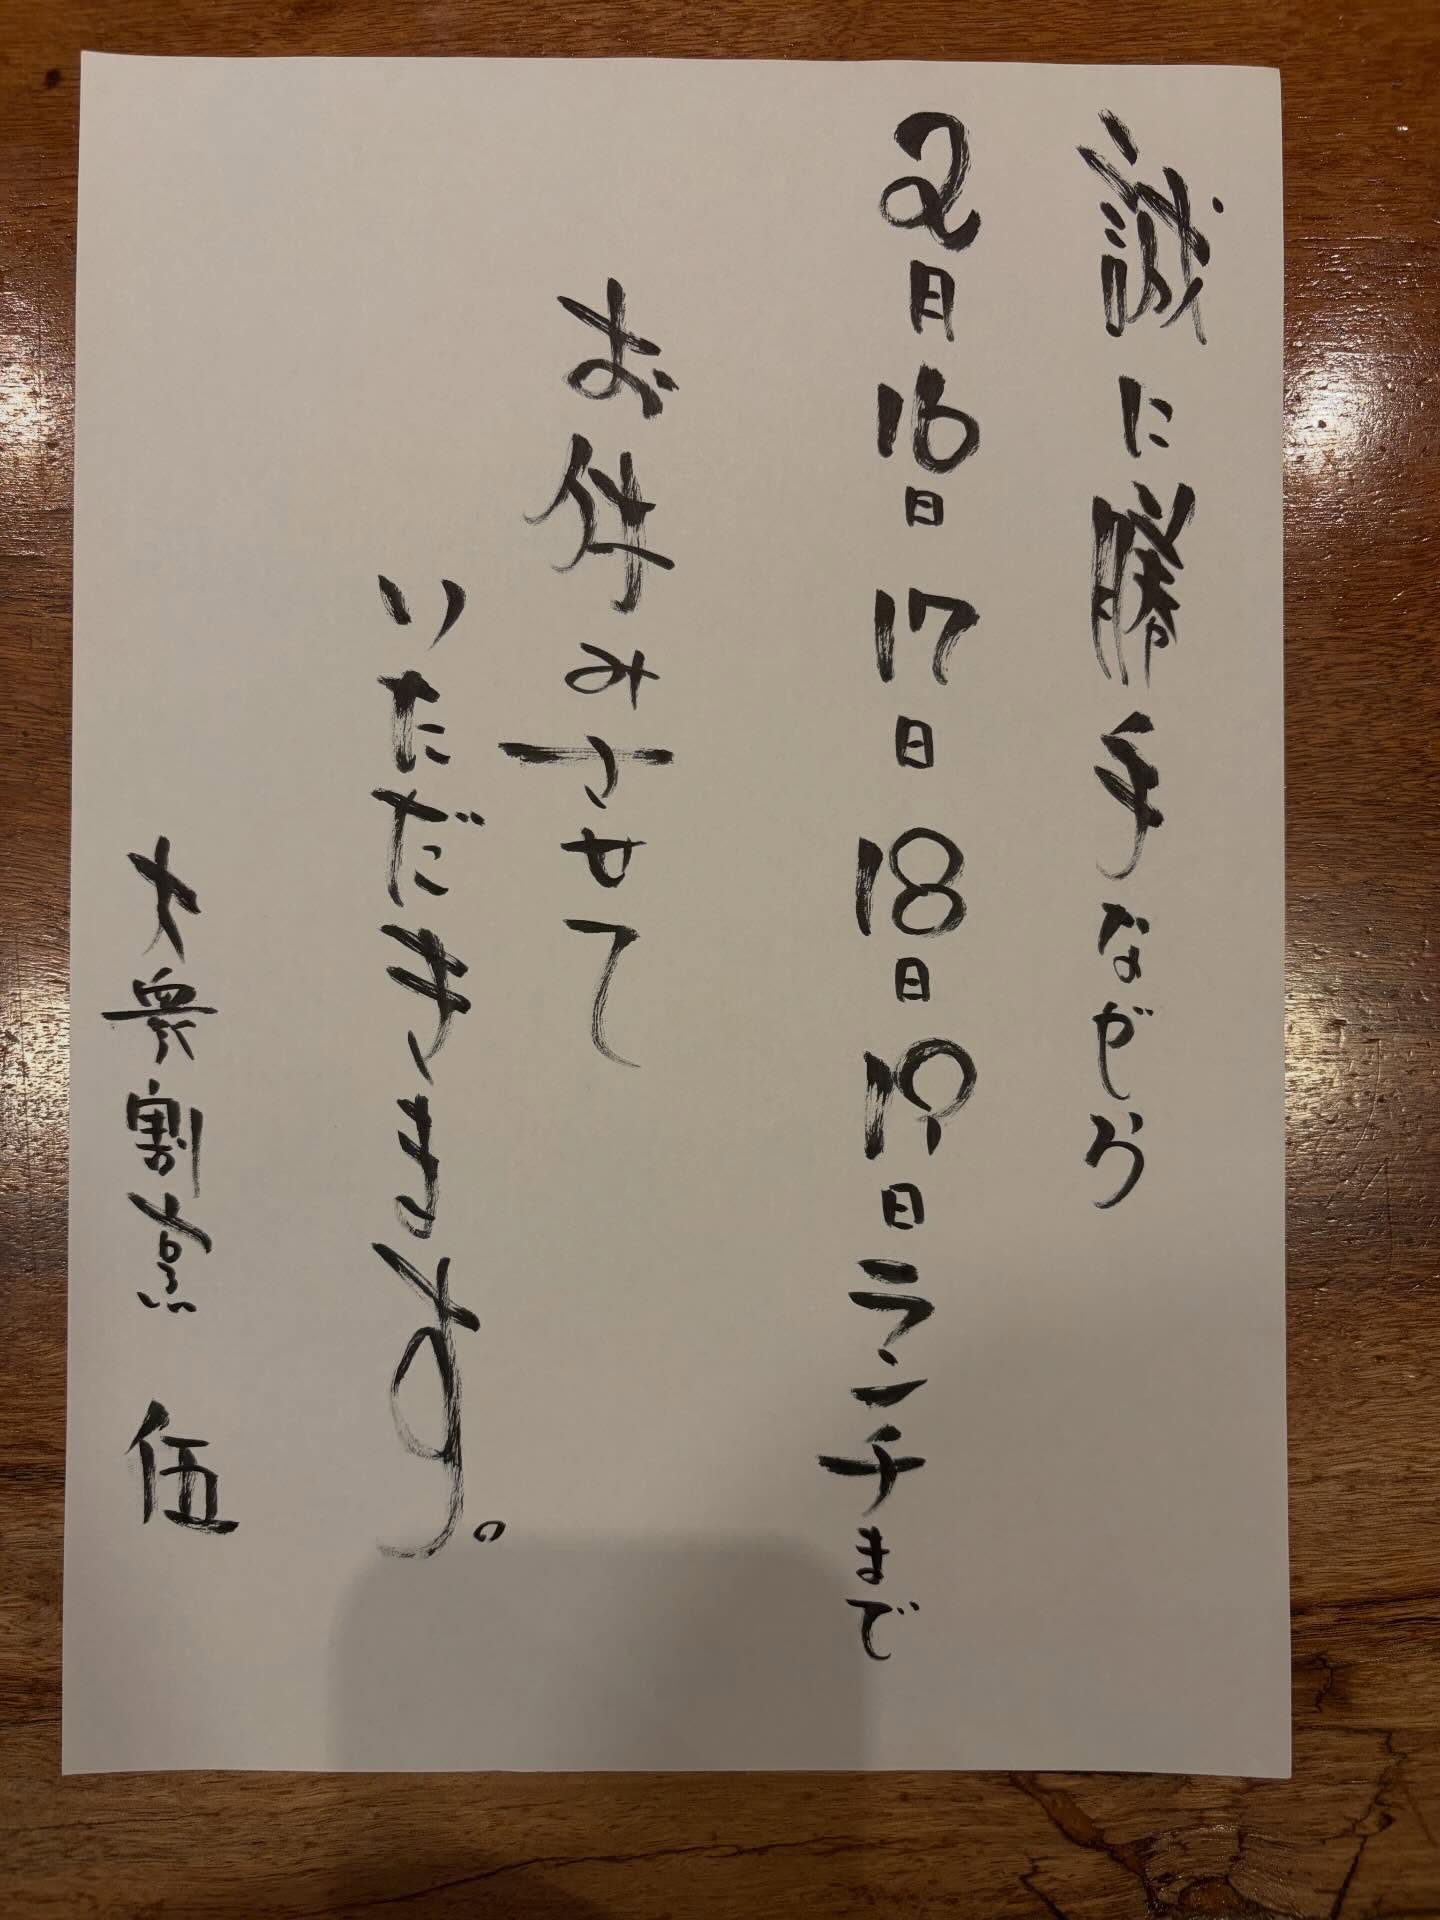 誠に勝手ながら
2月16日17日18日19日ランチまで
お休みさせて
いただきます。
大衆割烹 伍